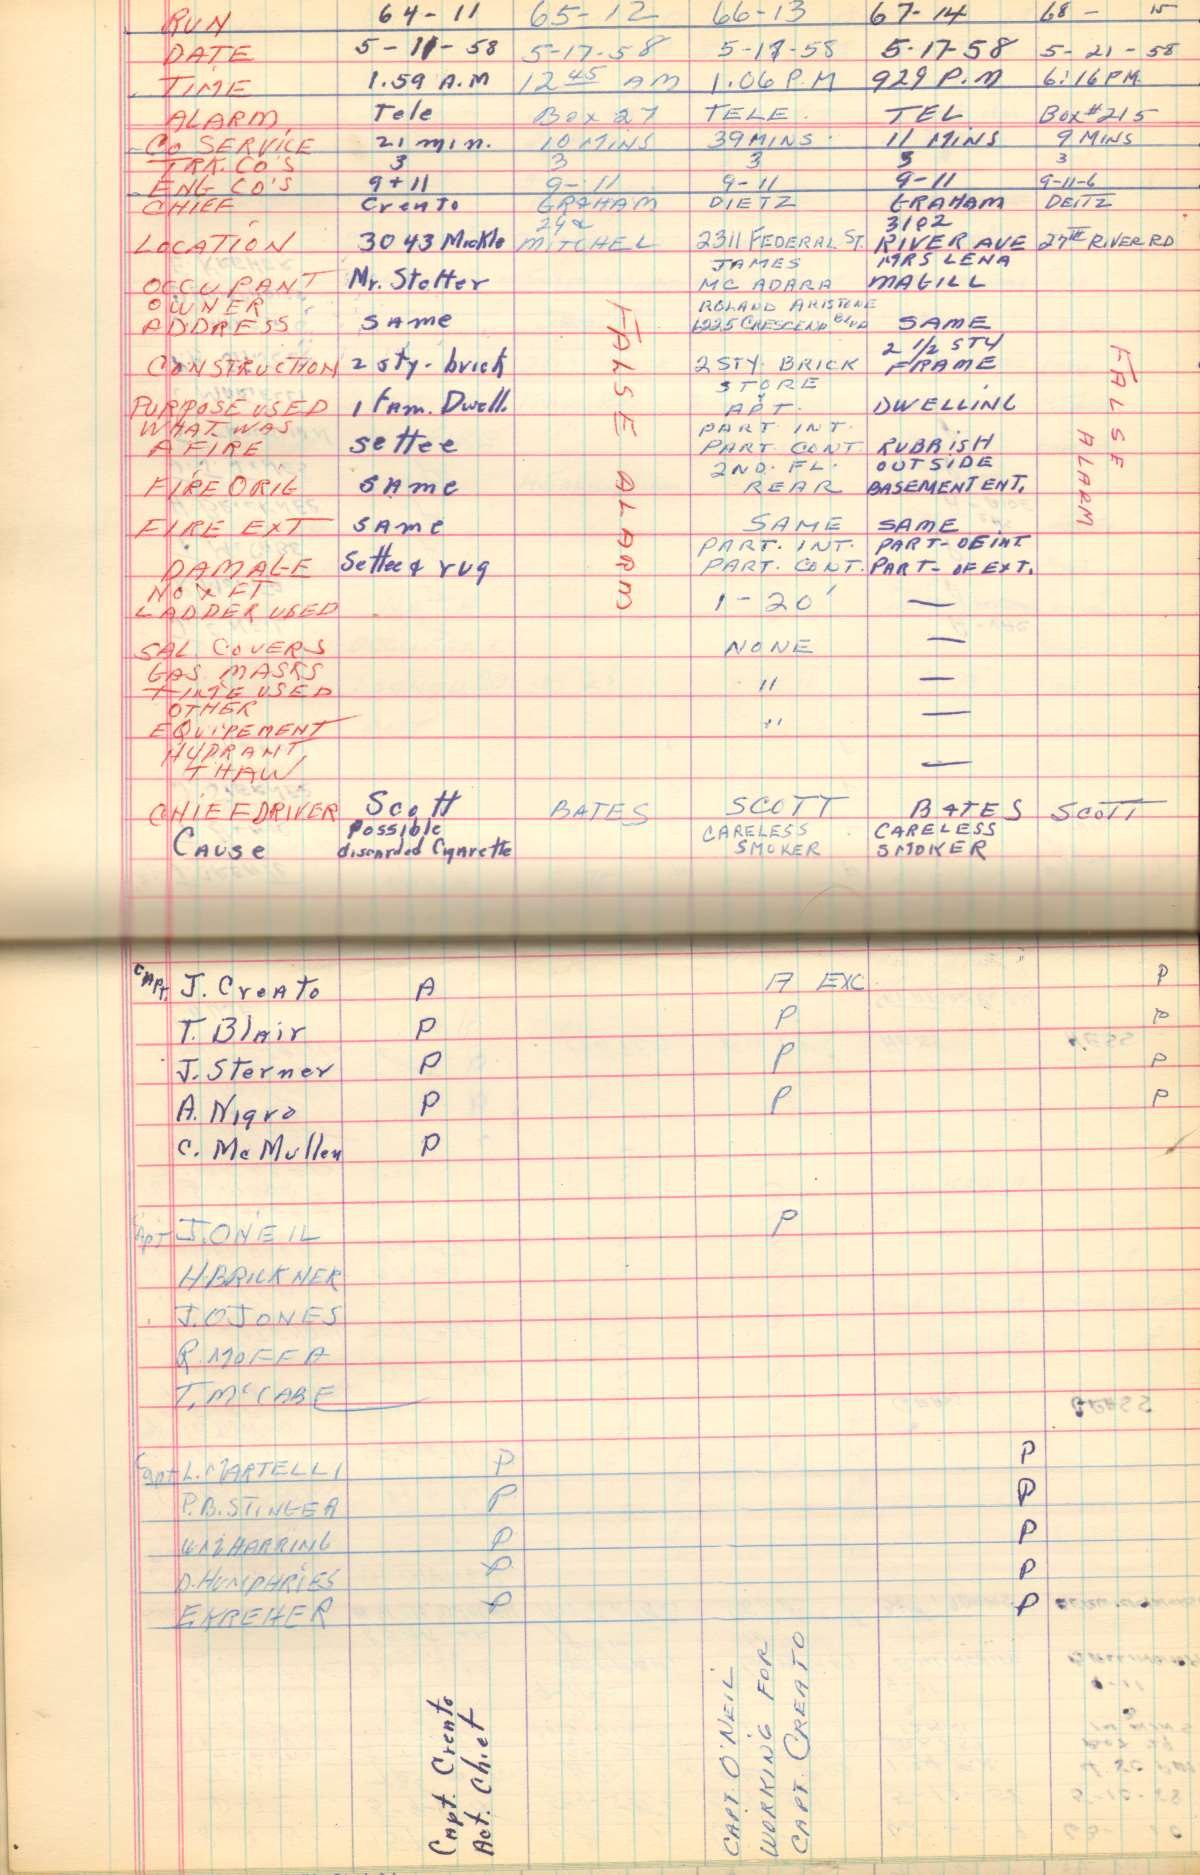 RUN 64-11 65-12 66-13 67-14 68- 15
DATE 5-11-58 5-17-58 5-17-58 5-17-58 5-21-58
TIME 1.59 A.M 12 45 AM 1.06 P.M 929 P.M 6:16 PM.
ALARM Tele Box 27 TELE. TEL Box #215
Co SERVICE 21 min. 10 MINS 39 MINS 11 MINS 9 MINS
TRK. CO'S 3 3 3 3 3
ENG CO'S 9+11 9-11 9-11 9-11 9-11-6
CHIEF Creato GRAHAM DIETZ GRAHAM DEITZ
3102
LOCATION 3043 Mickle MITCHEL 2311 FEDERAL ST. RIVER AVE 27TH RIVER RD
JAMES MRS LENA
OCCUPANT Mr. Stetter MC ADARA MAGILL
OWNER ROLAND ARISTONE
ADDRESS same 1225 CRESCEND BLVD SAME
2 1/2 STY
CONSTRUCTION 2 sty. brick 2 STY. BRICK FRAME
STORE
PURPOSE USED 1 Fam. Dwell. APT. DWELLING
WHAT WAS PART INT.
A FIRE settee PART CONT. RUBBISH
2ND. FL. OUTSIDE
FIRE ORIG same REAR BASEMENT ENT.
FIRE EXT same SAME SAME
PART. INT. PART-OF INT
DAMAGE Settee & rug PART. CONT. PART- OF EXT.
NO X FT
LADDER USED 1-20' —
SAL. COVERS NONE —
GAS MASKS
TIME USED " —
OTHER
EQUIPEMENT " —
HYDRANT
THAW —
FALSE ALARM
FALSE ALARM
CHIEF DRIVER Scott BATES SCOTT BATES SCOTT
Possible CARELESS CARELESS
Cause discarded Cigarette SMOKER SMOKER
CAPT. J. Creato A A EXC P
T. Blair P P P
J. Sterner P P P
A. Nigro P P P
C. McMullen P
Capt J. ONEIL P
H. BRICKNER
J. O JONES
R. MOFFA
T. McCABE
Capt L. MARTELLI P P
P. B. STINGER P P
HARRING P P
D. HUMPHRIES P P
E KREHER P P
Capt. Creato
Act. Chief
CAPT. O'NEIL
WORKING FOR
CAPT. CREATO